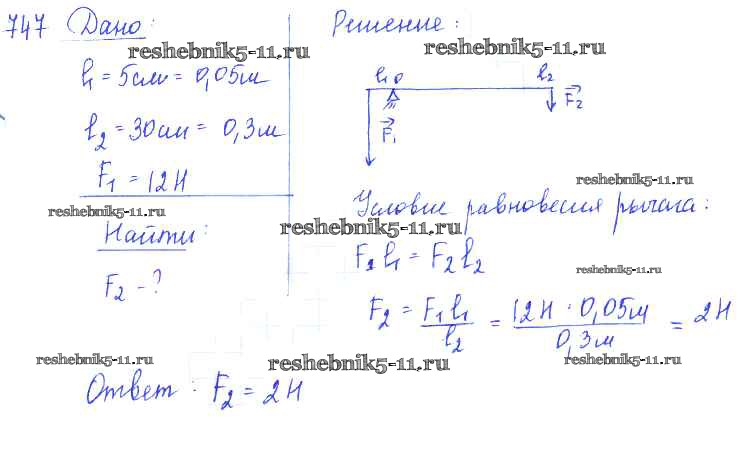 747 Дано:
reshebnik5-11.ru
l₁ = 5см = 0,05м
l₂ = 30см = 0,3м
F₁ = 12Н
reshebnik5-11.ru
Найти:
F₂ - ?
Решение:
reshebnik5-11.ru
l₁ O l₂
F₂
F₁
reshebnik5-11.ru
Условие равновесия рычага:
reshebnik5-11.ru
F₁l₁ = F₂l₂
reshebnik5-11.ru
F₂ = F₁l₁/l₂ = 12Н · 0,05м/0,3м = 2Н
reshebnik5-11.ru
reshebnik5-11.ru
reshebnik5-11.ru
Ответ: F₂ = 2Н